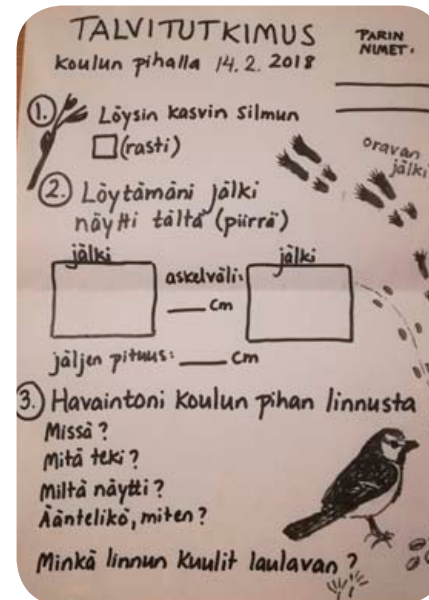 TALVITUTKIMUS
koulun pihalla 14.2.2018
PARIN
NIMET:
1. Löysin kasvin silmun
(rasti)
oravan
jälki
2. Löytämäni jälki
näytti tältä (piirrä)
jälki
askelväli:
___ cm
jälki
jäljen pituus: ___ cm
3. Havaintoni koulun pihan linnusta
Missä?
Mitä teki?
Miltä näytti?
Ääntelikö, miten?
Minkä linnun kuulit laulavan?